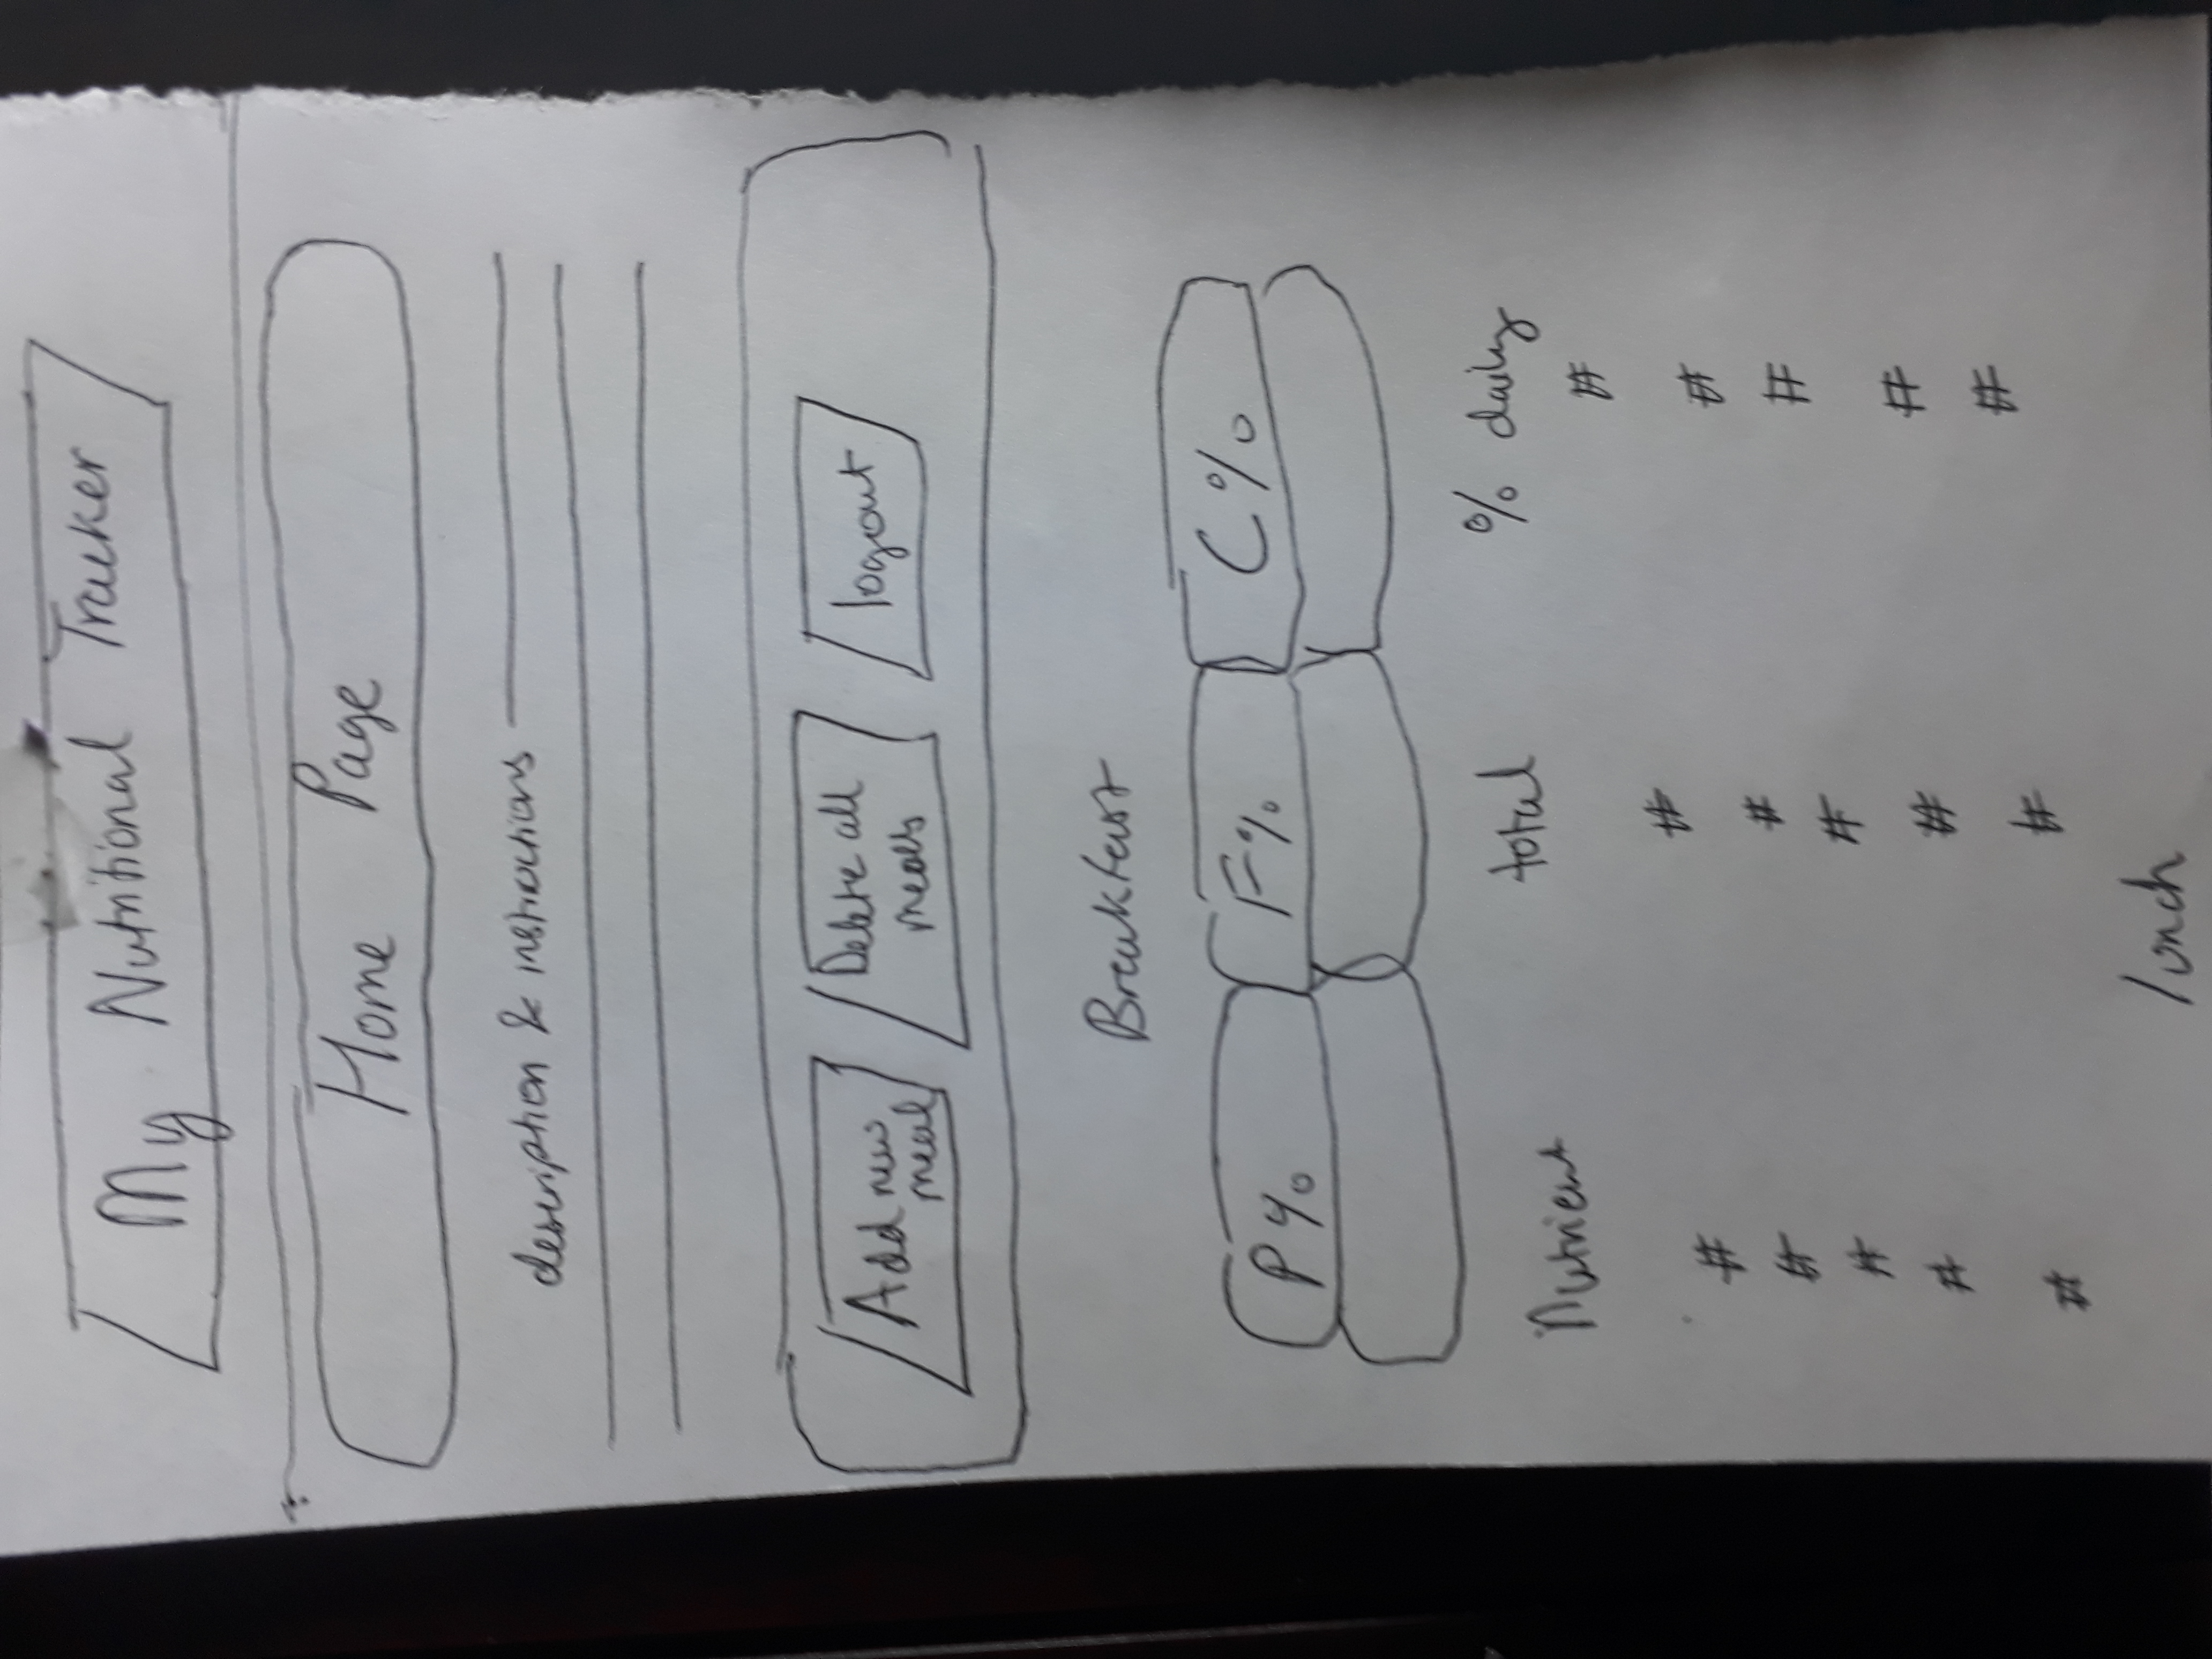 My Nutritional Tracker
Home Page
description & instructions
Add new meal
Delete all meals
logout
Breakfast
P% F% C%
Nutrient total % daily
# # #
# # #
# # #
# # #
# # #
lunch